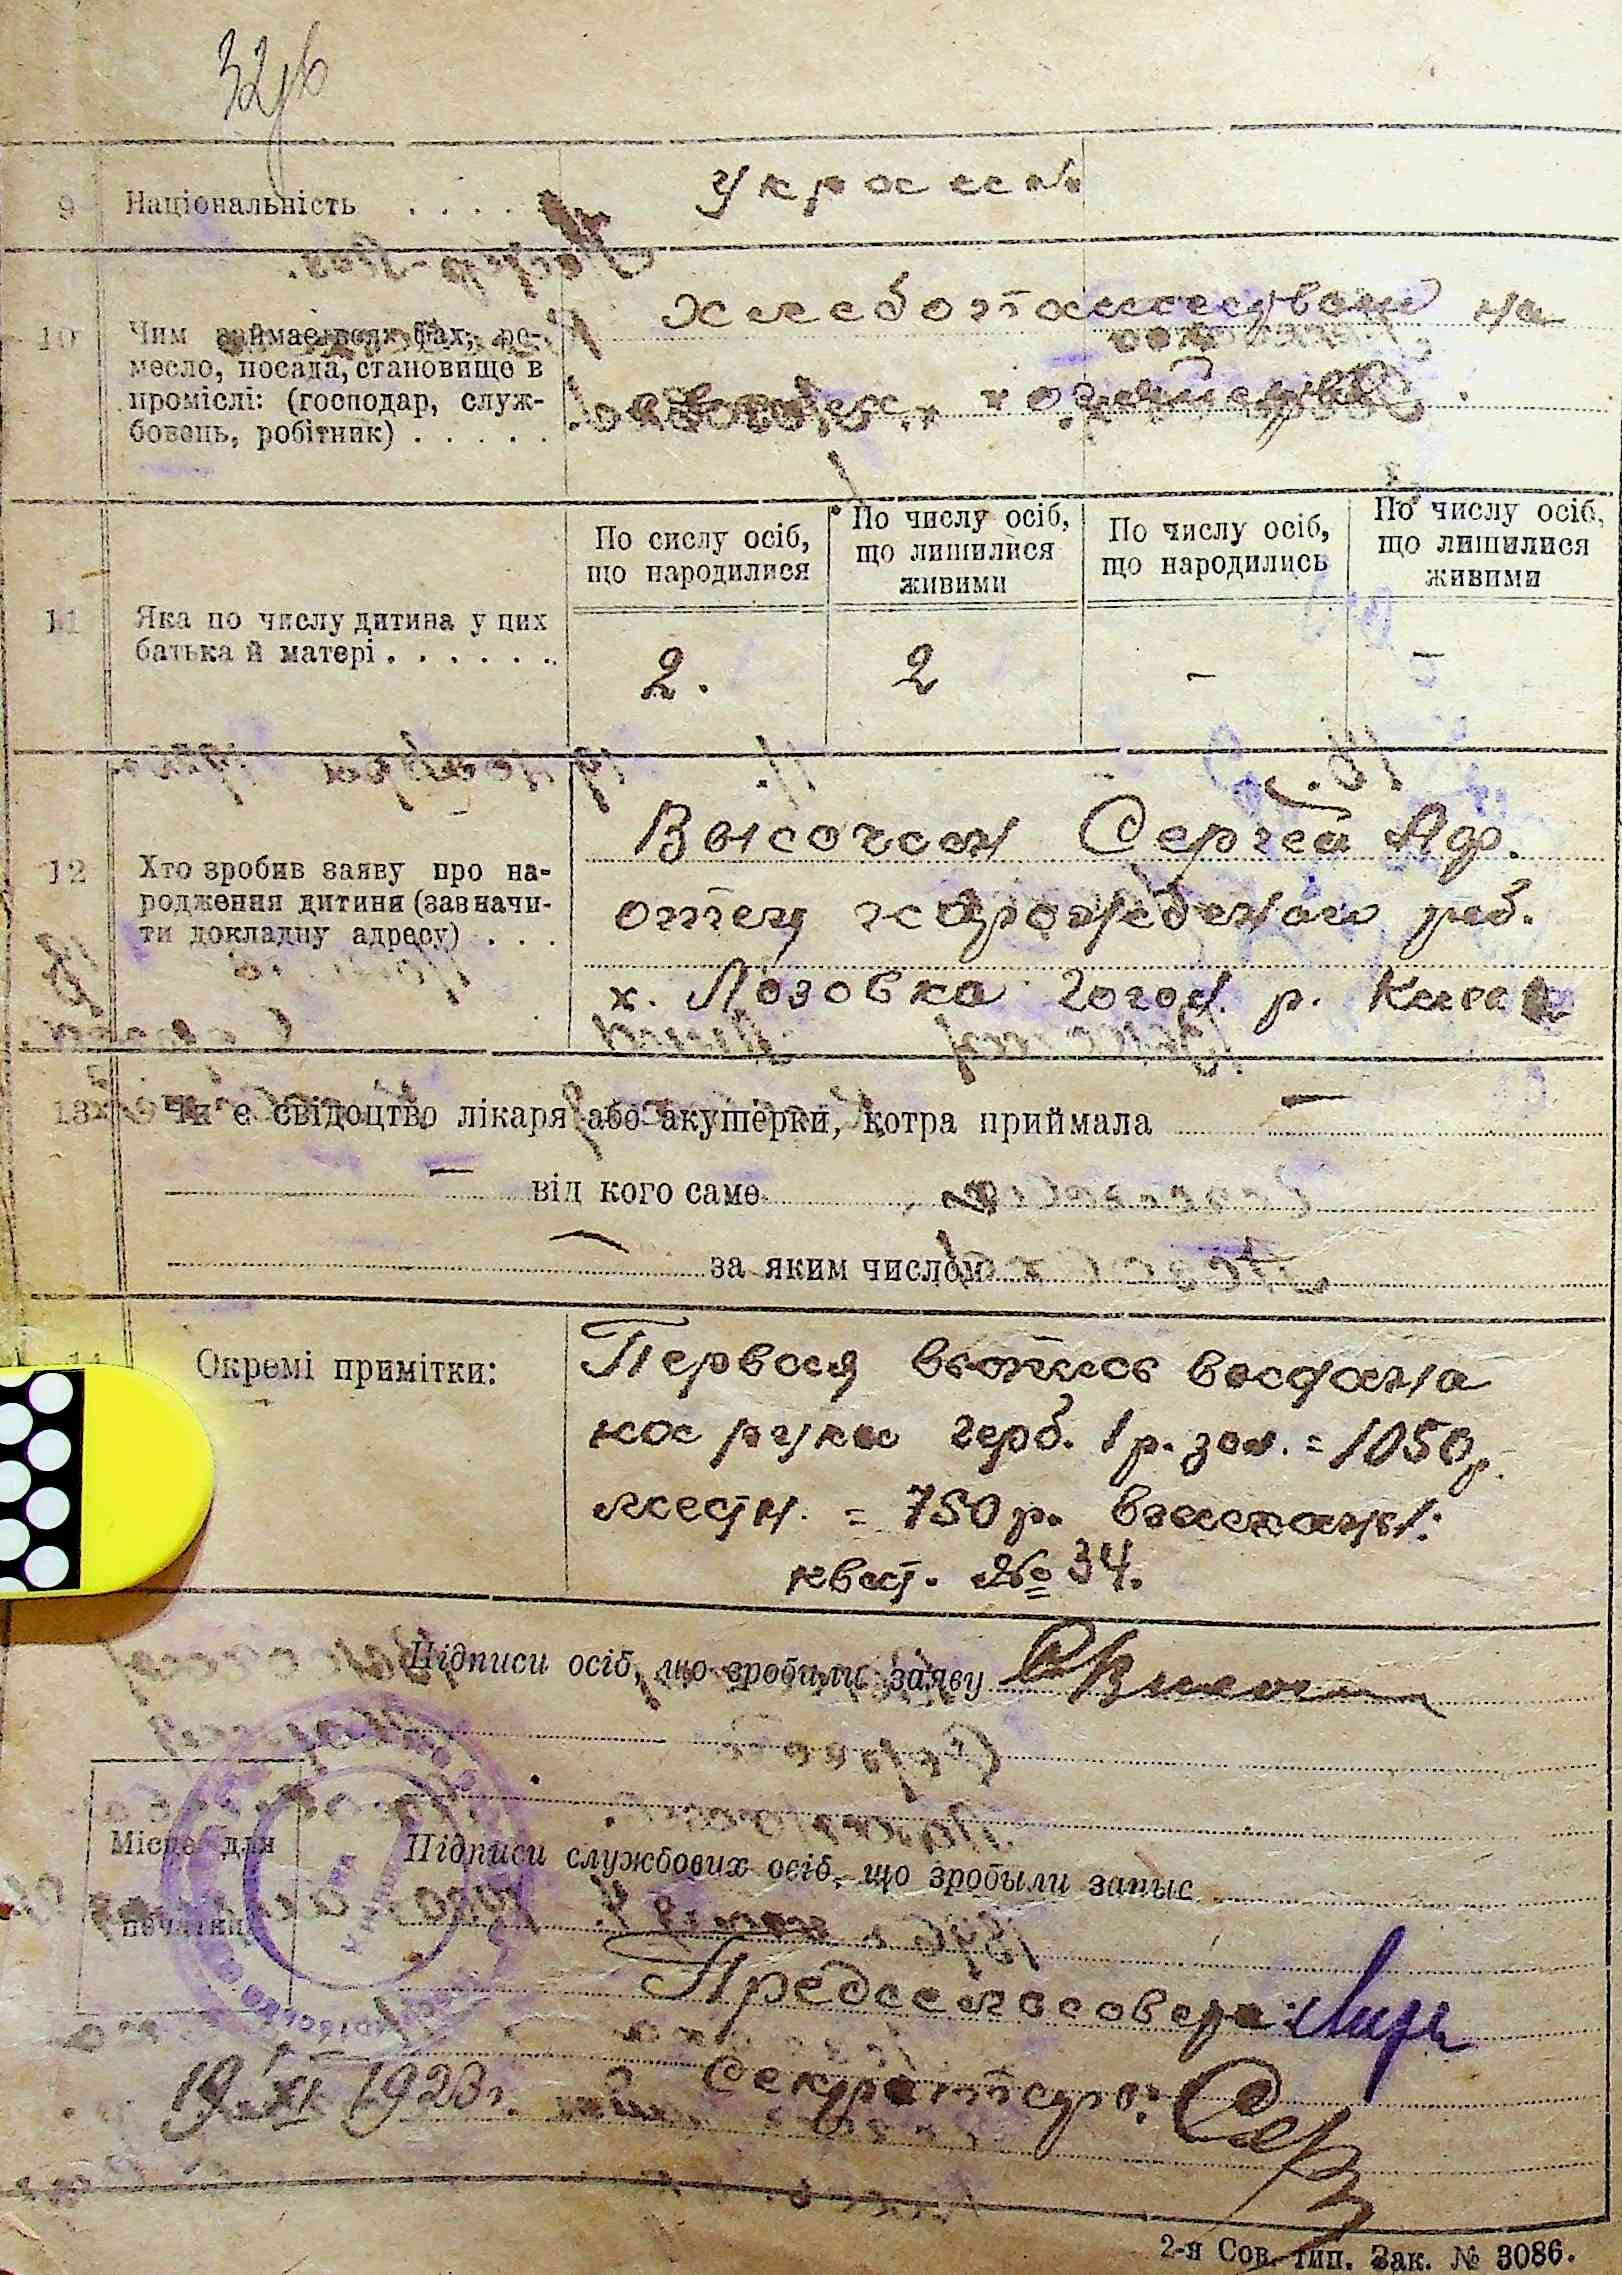 9 Національність . . . . Украин.
10 Чим займається: фах, ре-
месло, посада, становище в
проміслі: (господар, служ-
бовець, робітник) . . . . .
Хлебопашеством на
хозяйстве.
По сислу осіб, що народилися
По числу осіб, що лишилися живими
По числу осіб, що народились
По числу осіб, що лишилися живими
11 Яка по числу дитина у цих
батька й матері . . . . . . .
2. 2 - -
12 Хто зробив заяву про на-
родження дитини (зазначи-
ти докладну адресу) . . .
Высочин Сергей
отец новорожденного реб.
х. Лозовка р.
13 Чи є свідоцтво лікаря або акушерки, котра приймала —
— від кого саме
— за яким числом
Окремі примітки:
Первая выпись выдана
на руки герб. 1 р. зол. = 1050 р.
местн. = 750 р. взысканы:
квит. № 34.
Підписи осіб, що зробили заяву
Місце для
печатки
Підписи службових осіб, що зробыли запыс
Предсельсовета:
Секретарь:
19/XI 1923 г.
2-я Сов. тип. Зак. № 3086.